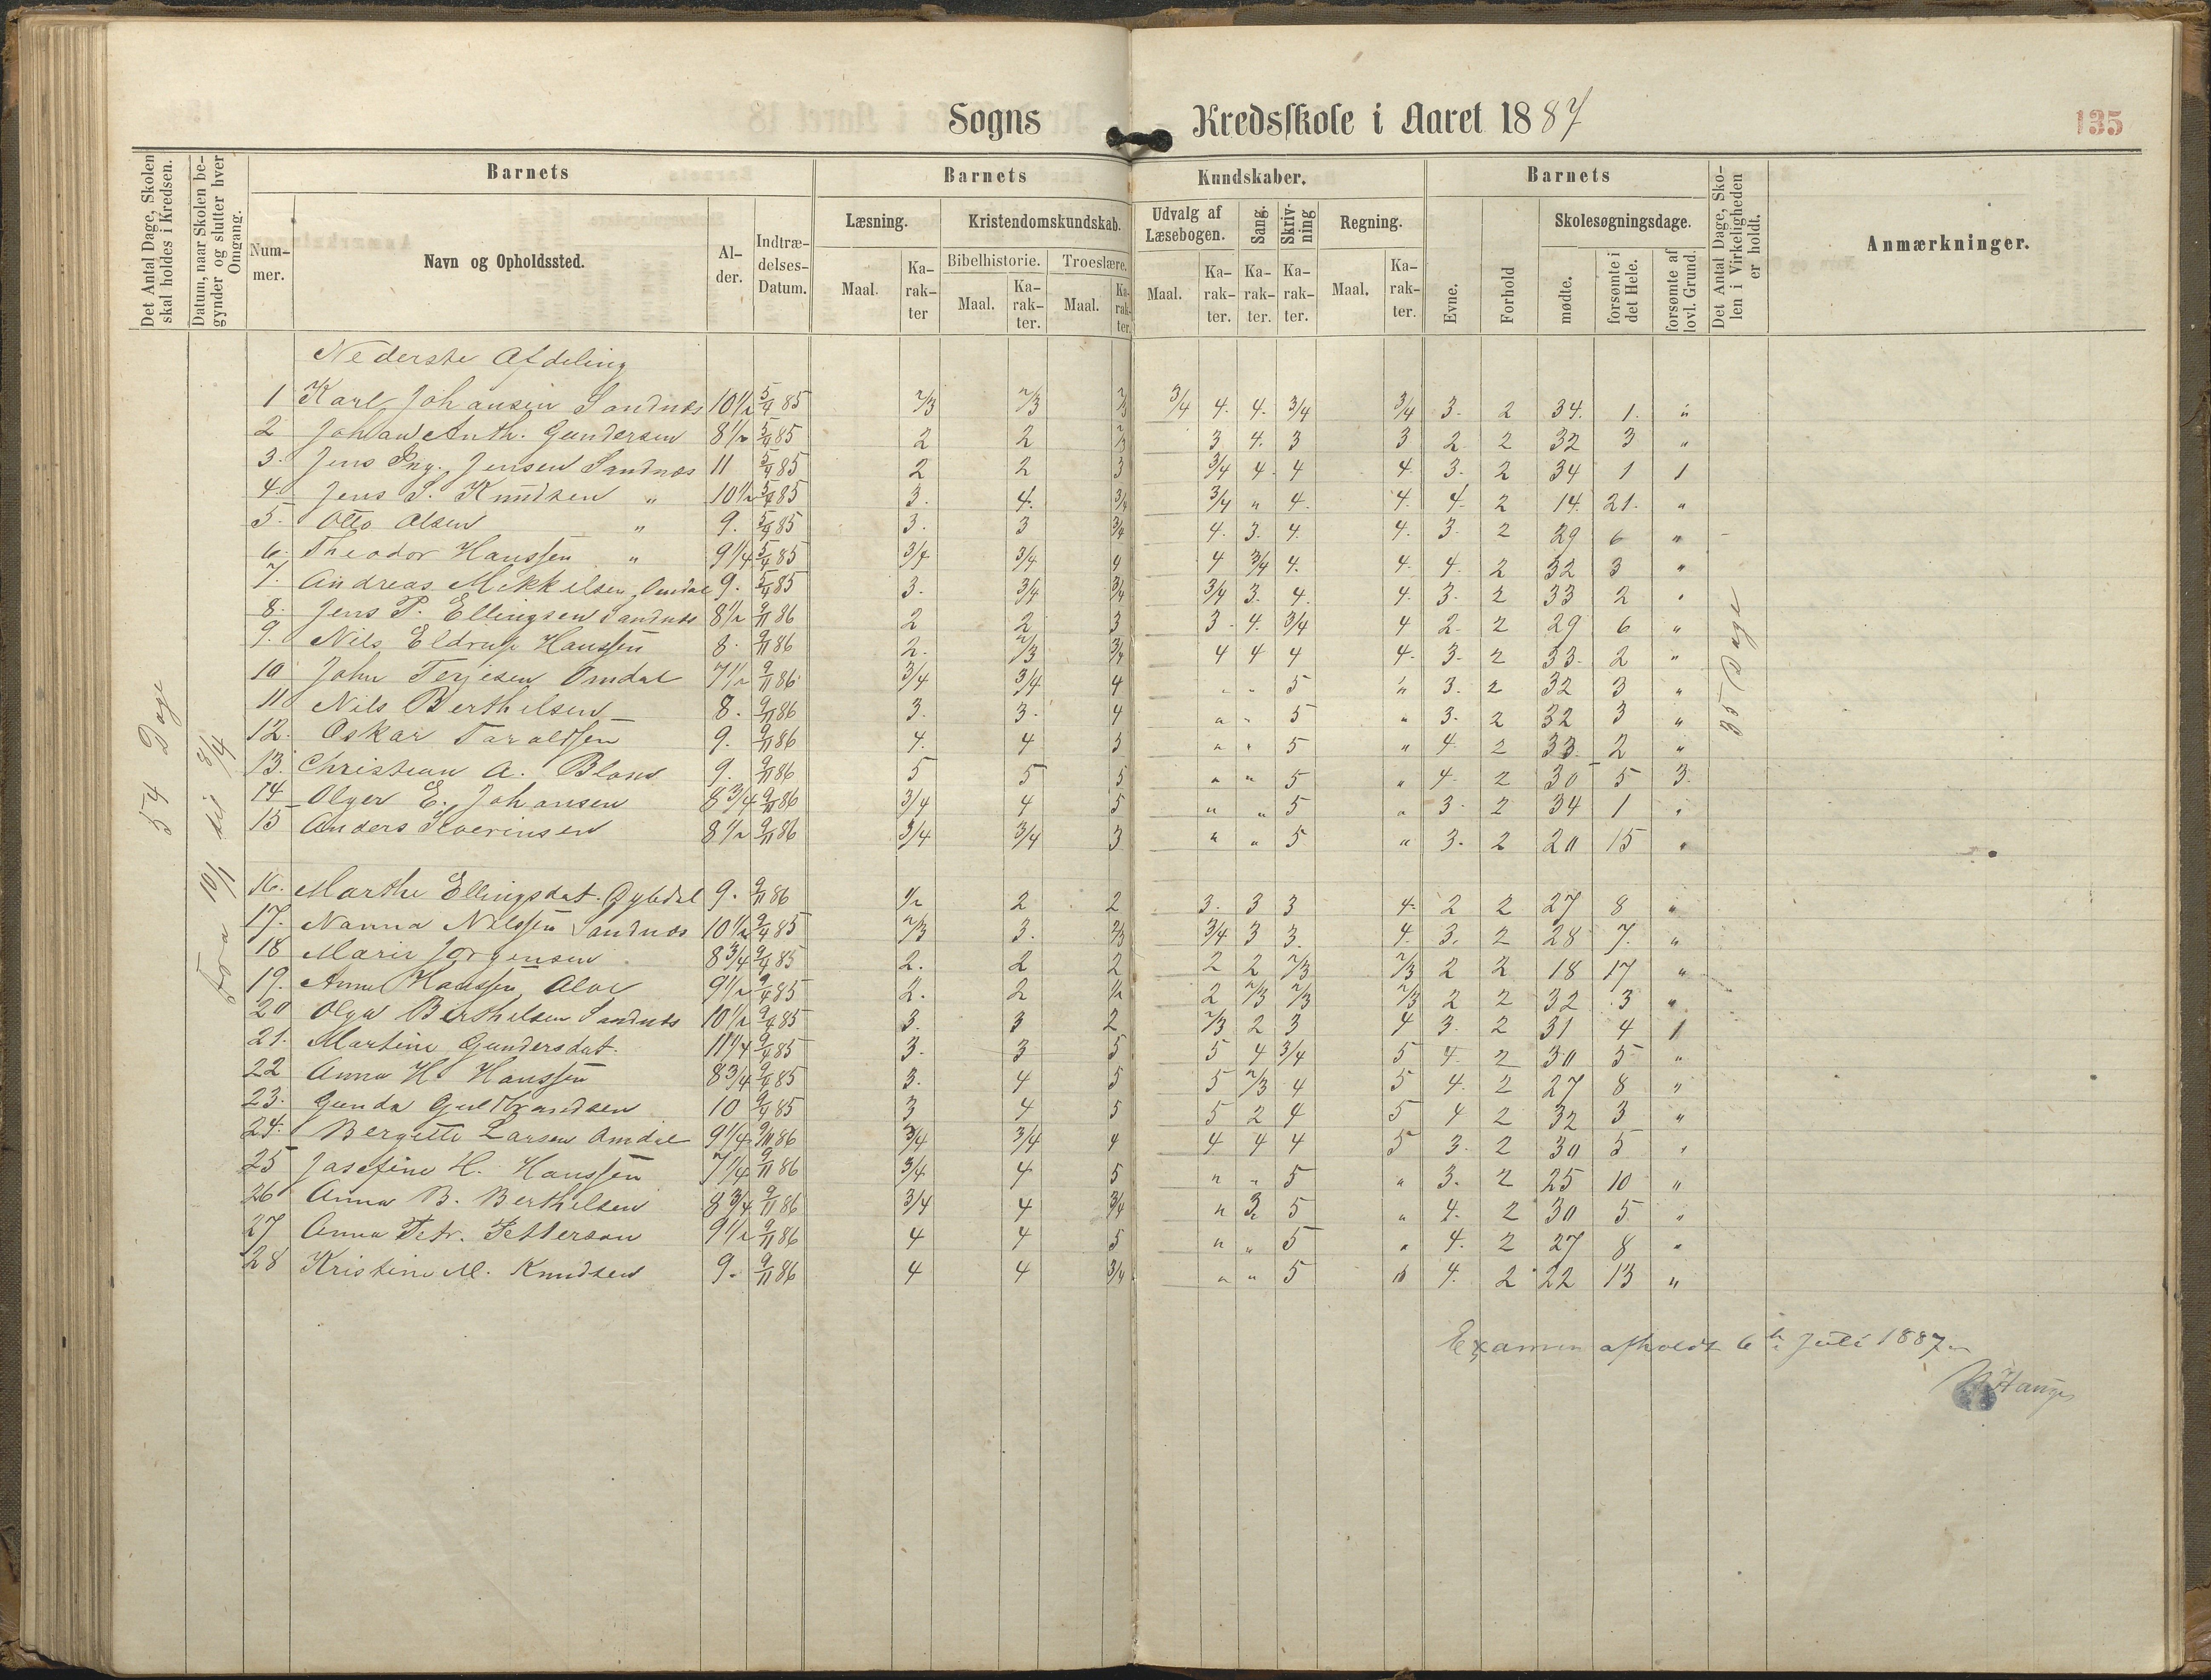 Sogns Kredsskole i Aaret 1887
135
Det Antal Dage, Skolen skal holdes i Kredsen.
Datum, naar Skolen begynder og slutter hver Omgang.
Barnets
Barnets Kundskaber.
Barnets
Det Antal Dage, Skolen i Virkeligheden er holdt.
Anmærkninger.
Nummer.
Navn og Opholdssted.
Alder.
Indtrædelses-Datum.
Læsning.
Kristendomskundskab.
Udvalg af Læsebogen.
Sang.
Skrivning
Regning.
Evne.
Forhold
Skolesøgningsdage.
Maal.
Karakter
Bibelhistorie.
Troeslære.
Maal.
Karakter.
Maal.
Karakter.
Maal.
Karakter.
Karakter.
Karakter.
Maal.
Karakter.
mødte.
forsømte i det Hele.
forsømte af lovl. Grund.
54 Dage
Fra 10/1 til 3/4
35 Dage
Nederste Afdeling
1 Karl Johansen Sandnes 10 1/2 5/4 85 2/3 2/3 2/3 3/4 4. 4. 3/4 3/4 3. 2 34. 1. "
2 Johan Anth. Gundersen 8 1/2 5/4 85 2 2 2/3 3 4. 3 3 2 2 32 3 "
3. Jens Ing. Jensen Sandnes 11 5/4 85 2 2 3 3/4 4. 4 4. 3. 2 34 1 1
4. Jens S. Knudsen " 10 1/2 5/4 85 3. 4. 3/4 3/4 " 4. 4. 4. 2 14. 21. "
5. Otto Olsen " 9. 5/4 85 3. 3 3/4 4. 3. 4. 4. 3. 2 29 6 "
6. Theodor Hanssen " 9 1/4 5/4 85 3/4 3/4 4 4 3/4 4. 4. 4. 2 32 3 "
7. Andreas Mikkelsen, Omdal 9. 5/4 85 3. 3/4 3/4 3/4 3. 4. 4. 3. 2 33 2 "
8. Jens P. Ellingsen Sandnes 8 1/2 9/11 86 2 2 3 3. 4. 3/4 4 2. 2 29 6 "
9. Nils Eldrup Hanssen 8. 9/11 86 2. 2/3 3/4 4 4 4 4. 3. 2 33. 2 "
10 John Terjesen Omdal 7 1/2 9/11 86 3/4 3/4 4 " " 5 " 3. 2 32 3 "
11 Nils Berthelsen 8. 9/11 86 3. 3. 4 " " 5 " 3. 2 32 3 "
12. Oskar Taraldsen 9. 9/11 86 4. 4 3 " " 5 " 4 2 33. 2 "
13. Christian A. 9. 9/11 86 5 5 5 " " 5 " 4. 2 30 5 3.
14 Olger E. Johansen 8 3/4 9/11 86 3/4 4 5 " " 5 " 3. 2 34 1 "
15 Anders Severinsen 8 1/2 9/11 86 3/4 3/4 3 " " 5 " 3. 2 20 15 "
16. Marthe Ellingsdat. 9. 9/11 86 1/2 2 2 3. 3 3 4. 2 2 27 8 "
17. Nanna Nilssen Sandnes 10 1/2 9/4 85 2/3 3. 2/3 3/4 3 3. 4. 3. 2 28 7. "
18 Marie Jørgensen 8 3/4 9/4 85 2. 2 2 2 2 2/3 2/3 2 2 18 17 "
19. Anne Hanssen Alve 9 1/2 9/4 85 2. 2 1/2 2 2/3 2/3 2/3 2 2 32 3 "
20 Olga Berthelsen Sandnes 10 1/2 9/4 85 3. 3 2 2/3 2 3 4 3. 2 31 4 1
21. Martine Gundersdat. 11 1/4 9/4 85 3. 3 5 5 4 3/4 5 4. 2 30 5 "
22 Anna H. Hanssen 8 3/4 9/4 85 3. 4 5 5 2/3 4 5 4. 2 27 8 "
23. Gunda Guldbrandsen 10 9/4 85 3 4 5 5 2 4 5 4 2 32 3 "
24. Bergitte Larsen Omdal 9 1/4 9/11 86 3/4 3/4 4 4 4 4 5 3. 2 30 5 "
25 Josefine H. Hanssen 7 1/4 9/11 86 3/4 4 5 " " 5 " 3. 2 25 10 "
26 Anna B. Berthelsen 8 3/4 9/11 86 3/4 4 3/4 " 3 5 " 4. 2 30 5 "
27 Anna Petr. Petterson 9 1/2 9/11 86 4 4 5 " " 5 " 4. 2 27 8 "
28 Kristine M. Knudsen 9. 9/11 86 4 4 3/4 " " 5 " 4. 2 22 13 "
Examen afholdt 6te Juli 1887.